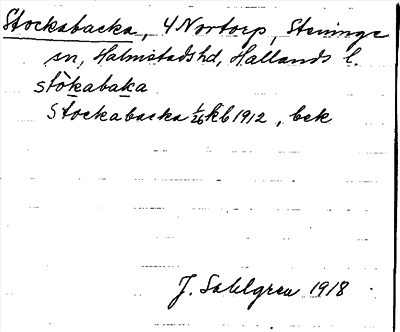 Stockabacka, 4 Nortorp, Steninge
sn, Halmstads hd, Hallands l.
stòkabaka
Stockabacka 1/26 kb 1912, bek
J. Sahlgren 1918